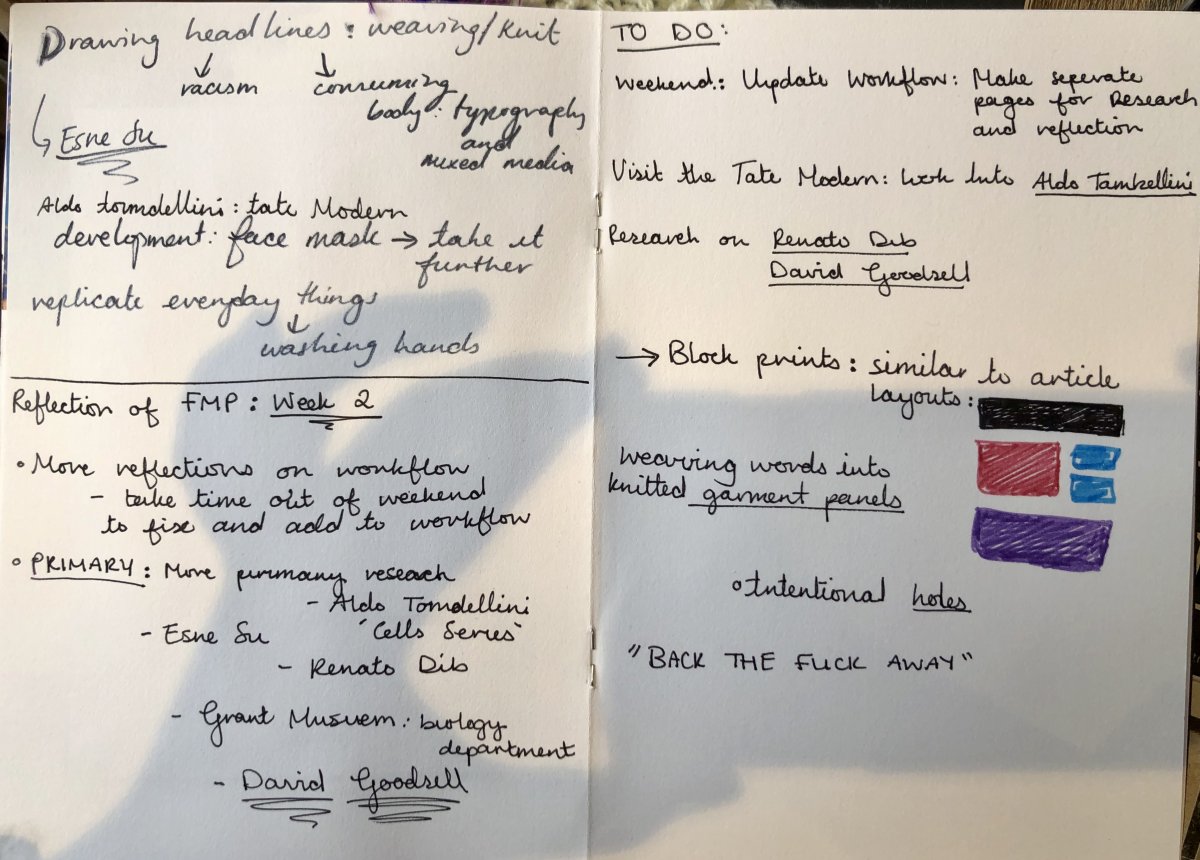 Drawing headlines : weaving/knit
racism
consuming
body : typography
and
mixed media
Esne Su
Aldo tormdellini : tate Modern
development : face mask → take it
further
replicate everyday things
washing hands
Reflection of FMP : Week 2
• More reflections on workflow
- take time out of weekend
to fix and add to workflow
• PRIMARY : More primary research
- Aldo Tomdellini
'Cells Series'
- Esne Su
- Renato Dib
- Grant Musuem : biology
department
- David Goodsell
TO DO :
Weekend : Update Workflow : Make seperate
pages for Research
and reflection
Visit the Tate Modern : look Into Aldo Tambellini
Research on Renato Dib
David Goodsell
→ Block prints : similar to article
layouts :
weaving words into
knitted garment panels
• Intentional holes
"BACK THE FUCK AWAY"